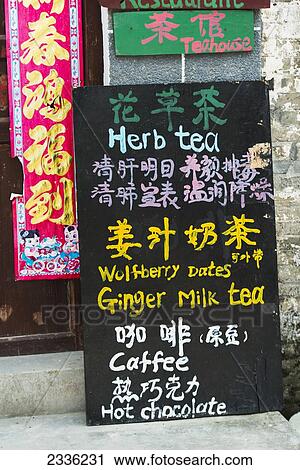 Restaurant
茶馆
Teahouse
新春鸿福到
花草茶
Herb tea
清肝明目 养颜排毒
清肺宣表 滋润降燥
姜汁奶茶
可外带
Wolfberry Dates
Ginger Milk tea
咖啡（原豆）
Caffee
热巧克力
Hot chocolate
fotosearch
2336231 www.fotosearch.com